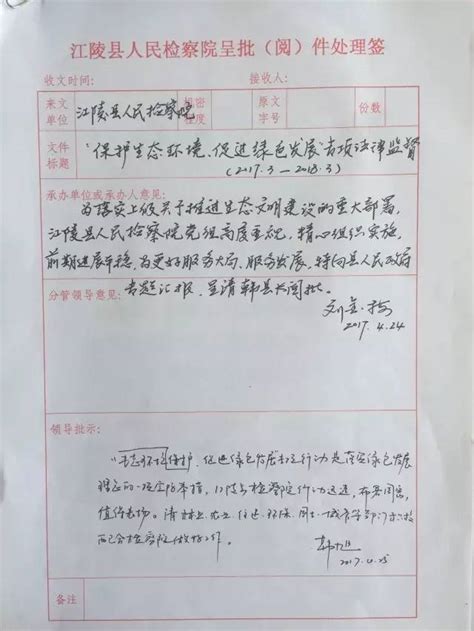 江陵县人民检察院呈批（阅）件处理签
收文时间： 接收人：
来文单位 江陵县人民检察院 秘密程度 原文字号 份数
文件标题 "保护生态环境、促进绿色发展"专项法律监督
(2017.3—2018.3)
承办单位或承办人意见：
为落实上级关于推进生态文明建设的重大部署，
江陵县人民检察院党组高度重视，精心组织实施，
前期进展平稳，为更好服务大局、服务发展，特向县人民政府
分管领导意见： 专题汇报，呈请韩县长阅批。
2017.4.24
领导批示：
生态环境保护，促进绿色发展专项行动是落实绿色发展
理念的一项全防举措，江陵县检察院行动迅速，布置周密，
值得表扬。请林业、农业、住建、环保、国土、城管等部门
配合检察院做好工作。
2017.4.25
备注